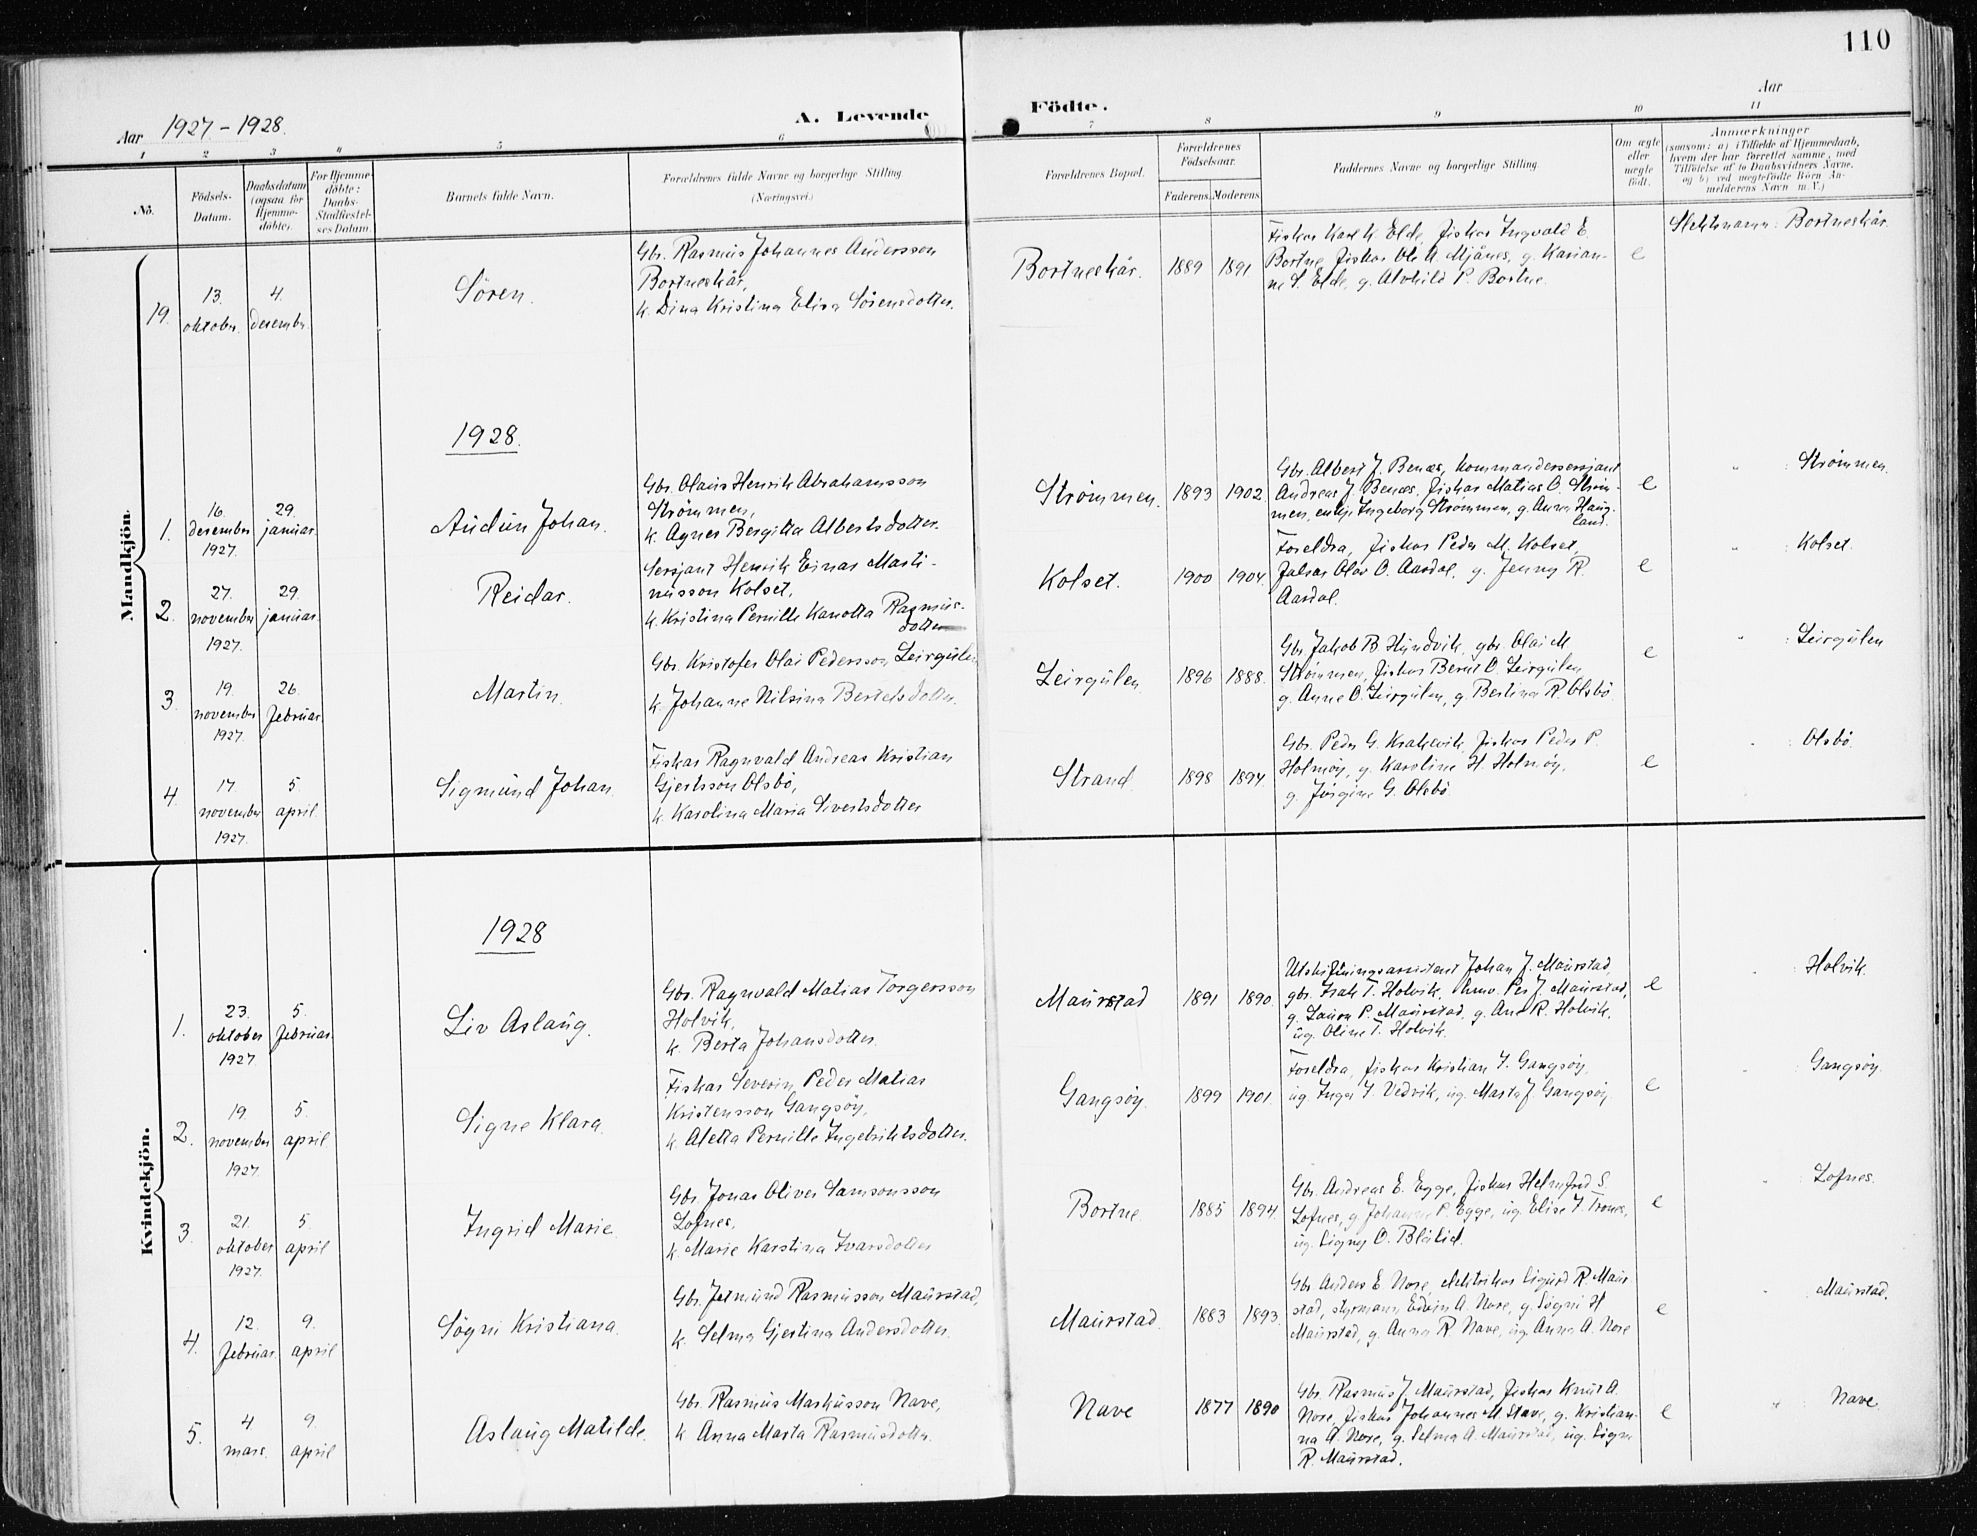 110
Aar 1927-1928.
A. Levende Födte.
Aar
1 2 3 4 5 6 7 8 9 10 11
No.
Födsels-Datum.
Daabsdatum (ogsaa for Hjemmedöbte).
For Hjemmedöbte: Daabs-Stadfæstelses Datum.
Barnets fulde Navn.
Forældrenes fulde Navne og borgerlige Stilling
(Næringsvei.)
Forældrenes Bopæl.
Forældrenes Födselsaar.
Faderens. Moderens.
Faddernes Navne og borgerlige Stilling
Om ægte eller uægte födt.
Anmærkninger
(saasom: a) i Tilfælde af Hjemmedaab,
hvem der har forrettet samme, med
Tilföielse af to Daabsvidners Navne,
og b) ved uægtefödte Börn An-
melderens Navn m. V.)
Mandkjön.
19.
13. oktober.
4. desember.
Sören.
Gbr. Rasmus Johannes Andersson
Bortneskår,
k. Dina Kristina Elisa Sörensdotter.
Bortneskår.
1889 1891
Fiskar Karl K. Elde, fiskar Ingvald E.
Bortne, fiskar Ole A. Mjånes, g. Karian-
ne S. Elde, g. Alvhild P. Bortne.
e
Slektsnamn: Bortneskår.
1928.
1.
16. desember 1927.
29. januar.
Audun Johan.
Gbr. Olaus Henrik Abrahamsson
Strømmen,
k. Agnes Bergitta Albertsdotter.
Strømmen.
1893 1902
Gbr. Albert J. Benæs, kommandersersjant
Andreas J. Benæs, fiskar Matias O. Strøm-
men, enkje Ingeborg Strømmen, g. Anna Haug-
land.
e
" : Strømmen.
2.
27. november 1927.
29. januar.
Reidar.
Sersjant Henrik Einar Marti-
nusson Kolset,
k. Kristina Pernille Kanotta Rasmus-
dotter
Kolset.
1900 1904.
Foreldra, fiskar Peder M. Kolset,
Olav O. Aardal, g. Jenny R.
Aardal.
e
" : Kolset.
3.
19. november 1927.
26. februar.
Martin.
Gbr. Kristofer Olai Pedersson Leirgulen
k. Johanne Nilsina Bertelsdotter.
Leirgulen
1896 1888.
Gbr. Jakob B. Hundvik, gbr. Olai M.
Strømmen, fiskar Bernt O. Leirgulen
g. Anne O. Leirgulen, g. Bertina R. Olsbö.
e
" : Leirgulen
4.
17 november 1927.
5. april.
Sigmund Johan.
Fiskar Ragnvald Andreas Kristian
Gjertsson Olsbö,
k. Karolina Maria Sivertsdotter
Strand.
1898 1894.
Gbr. Peder G. Krakevik, fiskar Peder P.
Holmöy, g. Karoline H. Holmöy,
g. Jörgine G. Olsbö.
e
" : Olsbö.
Kvindekjön.
1928
1.
23. oktober 1927
5. februar.
Liv Aslaug.
Gbr. Ragnvald Matias Torgersson
Holvik,
k. Berta Johansdotter.
Maurstad
1891 1890.
Utskiftningsassistent Johan J. Maurstad,
gbr. Isak T. Holvik, Per J. Maurstad,
g. Laura P. Maurstad, g. Ane R. Holvik,
ug. Oline T. Holvik.
e
" : Holvik.
2.
19. november 1927.
5. april
Signe Klara.
Fiskar Severin Peder Matias
Kristensson Gangsöy,
k. Aletta Pernille Ingebriktsdotter.
Gangsöy.
1899 1901.
Foreldra, fiskar Kristian I. Gangsöy,
ug. Inga I. Vedvik, ug. Marta J. Gangsöy.
e
" : Gangsöy.
3.
21. oktober 1927.
5. april
Ingrid Marie.
Gbr. Jonas Oliver Samsonsson
Lofnes,
k. Marie Karstina Ivarsdotter
Bortne
1885 1894.
Gbr. Andreas E. Egge, fiskar Helmfred S.
Lofnes, g. Johanne P. Egge, ug. Elise I.
ug. Signy O. Blålid.
e
" : Lofnes.
4.
12. februar
9. april
Sögni Kristiana.
Gbr. Jetmund Rasmusson Maurstad,
k. Selma Gjertina Andersdotter.
Maurstad.
1883 1893.
Gbr. Anders E. Nore, elektrikar Sigurd R. Maur
stad, styrmann Edvin A. Nore, g. Sögni H
Maurstad, g. Anna R. Nave, ug. Anna A. Nore
e
" : Maurstad.
5.
4 mars.
9. april
Aslaug Matilde.
Gbr. Rasmus Markusson Nave,
k. Anna Marta Rasmusdotter.
Nave
1877 1890
Gbr. Rasmus J. Maurstad, fiskar Knut A.
Nore, fiskar Johannes M. Stave, g. Kristian-
na A. Nore, g. Selma A. Maurstad, ug. Signe
R. Maurstad.
e
" : Nave.